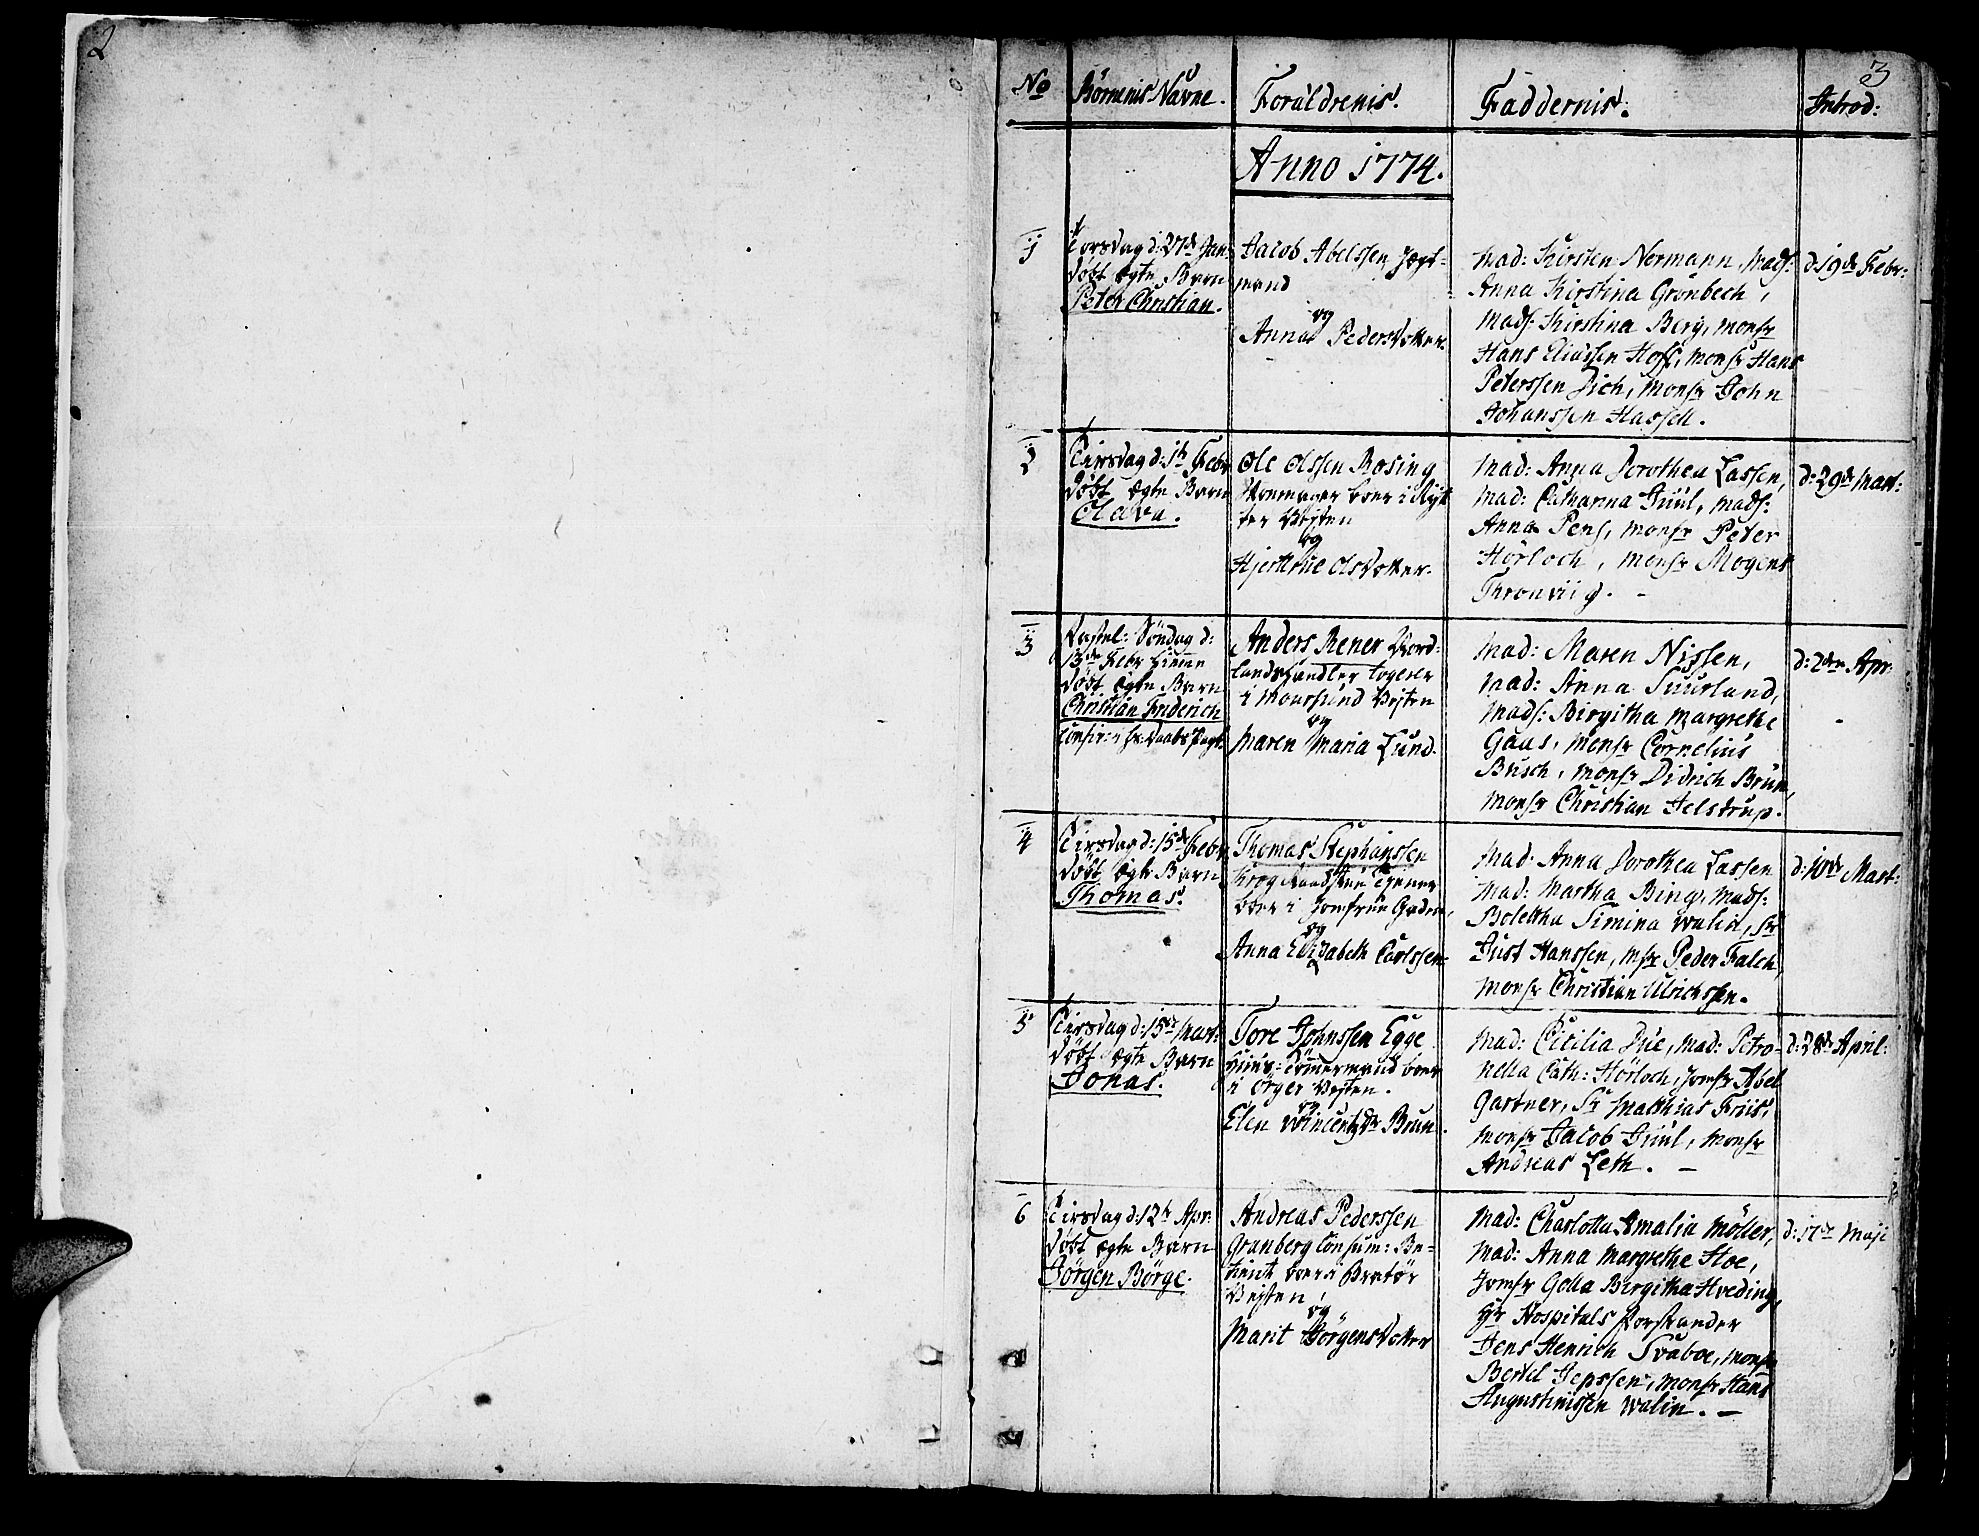 2
3
No Börnenis Navne. Forældrenis. Faddernis. Introd:
Anno 1774.
1
Torsdag d: 27de Jan:
döbt ægte Barn
Peter Christian.
Jacob Abelssen Jægt-
mand
og
Anna Pedersdotter.
Mad: Kirsten Normann, Mads:
Anna Kirstina Grönbech,
Mads: Kirstina Berg, Monsr
Hans Eliassen Hoff, Monsr Hans
Peterssen Dich, Monsr John
Johanssen Hassell.
d: 19de Febr:
2
Tirsdag d: 1te Febr
döbt ægte Barn
Olava.
Ole Olssen Rosing
Skoemager boer i
ter Veiten
og
Olsdotter.
Mad: Anna Dorothea Lassen,
Mad: Catharina Juul, Mads:
Anna Pens, Monsr Peter
Hörloch, Monsr Mogens
Thronviig. -
d: 29de Mart:
3
Fastel: Söndag d:
13de Febr hieme
döbt ægte Barn
Christian Friderich
Anders Rener Nord-
landshandler logerer
i Moursund Veiten
og
Maren Maria Lund.
Mad: Maren Nissen,
Mad: Anna Suurland,
Mads: Birgitha Margrethe
Gaas, Monsr Cornelius
Busch, Monsr Didrich Brun,
Monsr Christian Jelstrup.
d: 2den Apr.
4
Tirsdag d: 15de Febr
döbt ægte Barn
Thomas.
Thomas Stephanssen
Krog Tienner
boer i Jomfrue Gaden,
og
Anna Elizabeth Carlssen
Mad: Anna Dorothea Lassen
Mad: Martha Bing, Mads:
Bolettha Simina Walin, Sr
Just Hanssen, Msr Peder Falch,
Monsr Christian Ulrichssen.
d: 10de Mart:
5
Tirsdag d: 15de Mart:
döbt ægte Barn
Jonas.
Tore Johnssen Egge
Huus-Tömermand boer
i Örger Veiten.
og
Elen Vincentzdr Brun.
Mad: Cicilia Due, Mad: Petro-
nella Cath: Hörloch, Jomfr Abel
Gartner, Sr Matthias Friis,
Monsr Jacob Juul, Monsr
Andreas Leth. -
d: 28de April:
6
Tirsdag d: 12te Apr:
döbt ægte Barn
Jörgen Börge.
Andreas Pederssen
Granberg Consum: Be-
tient boer i Bratör
Veiten,
og
Marit Jörgensdotter
Mad: Charlotta Amalia Möller,
Mad: Anna Margrethe Hoe,
Jomfr Golla Birgitha Hveding,
Hr Hospitals Forstander
Jens Henrich Svaboe, Monsr
Bertel Jepssen, Monsr Hans
Augustinissen Walin. -
d: 17de Maji